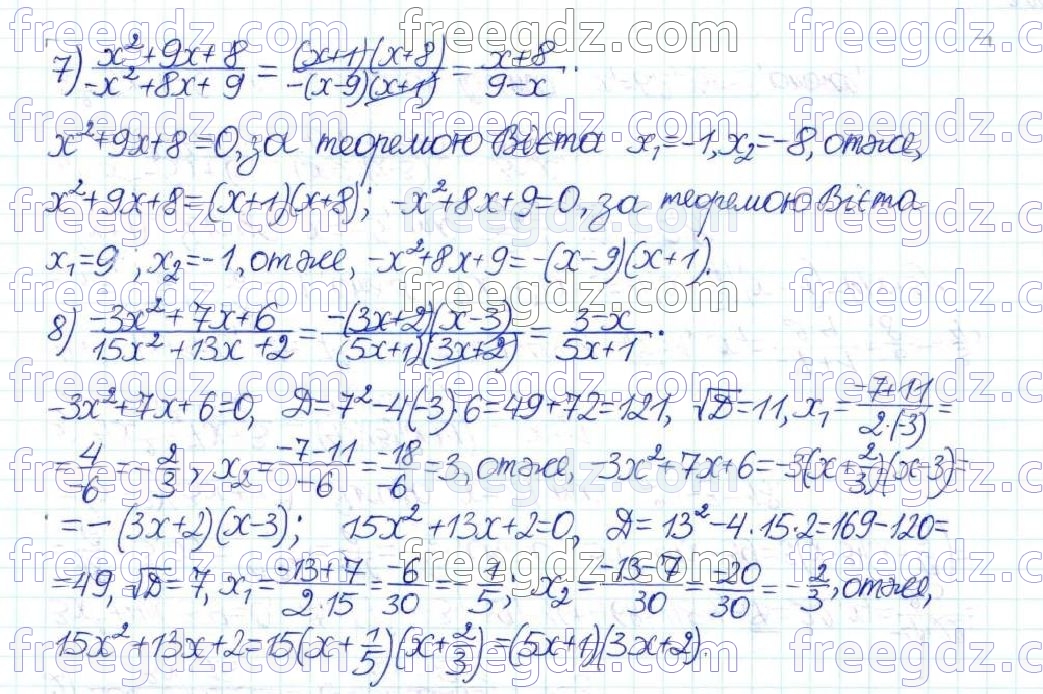 7) (x²+9x+8)/(-x²+8x+9) = ((x+1)(x+8))/(-(x-9)(x+1)) = (x+8)/(9-x).
x²+9x+8=0, за теоремою Вієта x₁=-1, x₂=-8, отже,
x²+9x+8=(x+1)(x+8); -x²+8x+9=0, за теоремою Вієта
x₁=9; x₂=-1, отже, -x²+8x+9=-(x-9)(x+1).
8) (-3x²+7x+6)/(15x²+13x+2) = (-(3x+2)(x-3))/((5x+1)(3x+2)) = (3-x)/(5x+1).
-3x²+7x+6=0, D=7²-4(-3)·6=49+72=121, √D=11, x₁=(-7+11)/(2·(-3))=
=4/(-6)=-2/3; x₂=(-7-11)/(-6)=(-18)/(-6)=3, отже, -3x²+7x+6=-3(x+2/3)(x-3)=
=-(3x+2)(x-3); 15x²+13x+2=0, D=13²-4·15·2=169-120=
=49, √D=7, x₁=(-13+7)/(2·15)=(-6)/30=-1/5; x₂=(-13-7)/30=(-20)/30=-2/3, отже,
15x²+13x+2=15(x+1/5)(x+2/3)=(5x+1)(3x+2).
freegdz.com